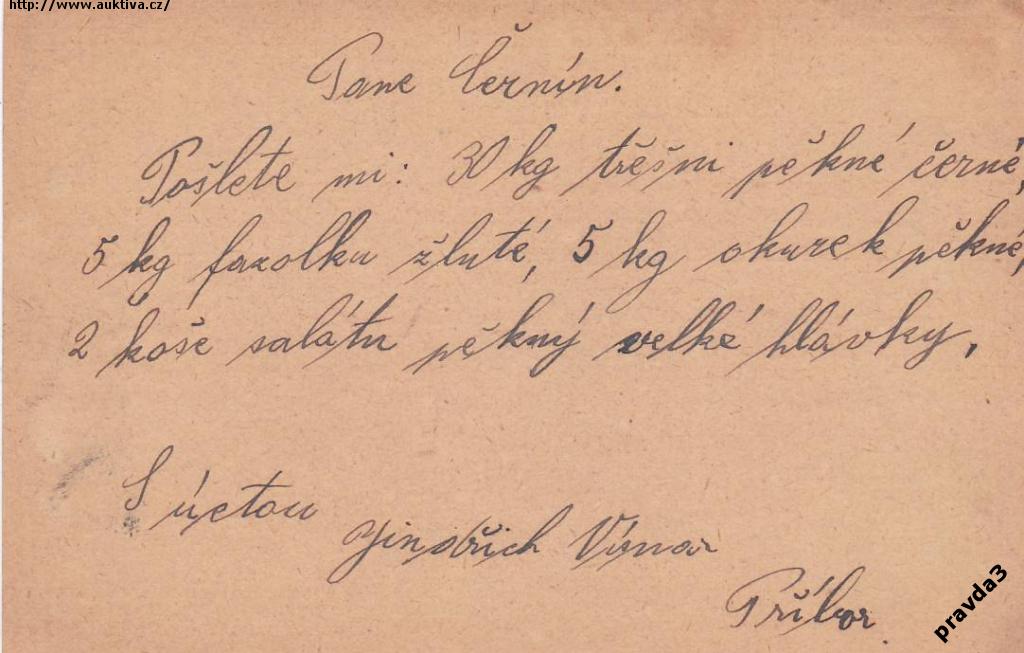 http://www.auktiva.cz/
Pane Černín.
Pošlete mi: 30 kg třešni pěkné černé,
5 kg fazolku žluté, 5 kg okurek pěkné,
2 koše salátu pěkný velké hlávky.
S úctou
Jindřich
Příbor
pravda3